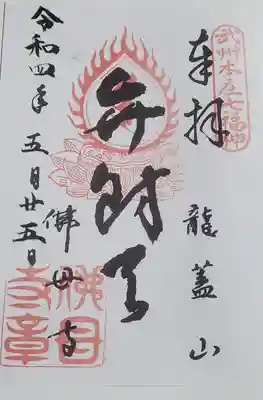 武州本庄七福神
奉拝
龍蓋山
弁財天
佛母寺
令和四年五月廿五日
佛母寺章